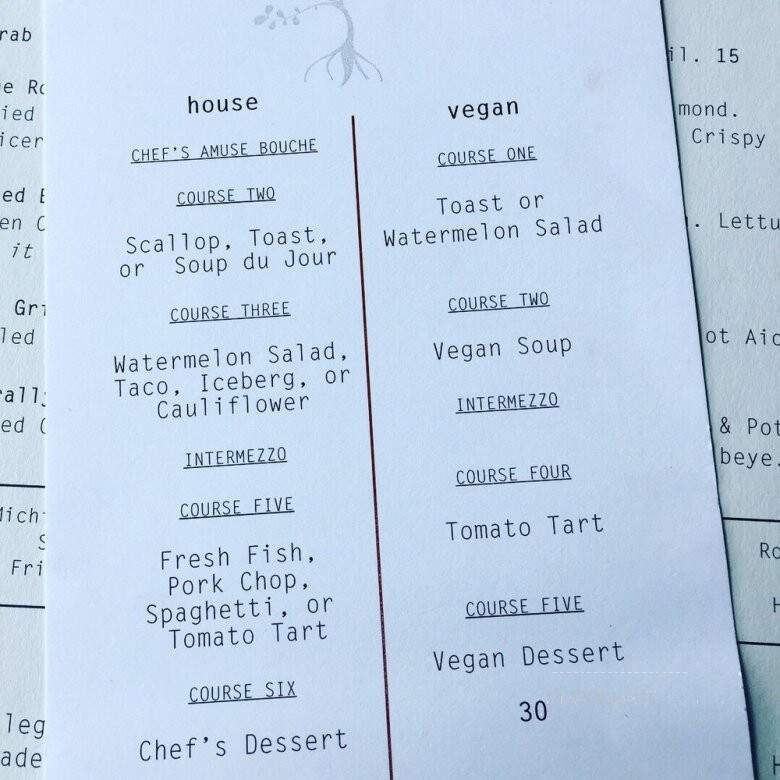 house
CHEF'S AMUSE BOUCHE
COURSE TWO
Scallop, Toast,
or Soup du Jour
COURSE THREE
Watermelon Salad,
Taco, Iceberg, or
Cauliflower
INTERMEZZO
COURSE FIVE
Fresh Fish,
Pork Chop,
Spaghetti, or
Tomato Tart
COURSE SIX
Chef's Dessert
vegan
COURSE ONE
Toast or
Watermelon Salad
COURSE TWO
Vegan Soup
INTERMEZZO
COURSE FOUR
Tomato Tart
COURSE FIVE
Vegan Dessert
30
it
15
Crispy
& Pot